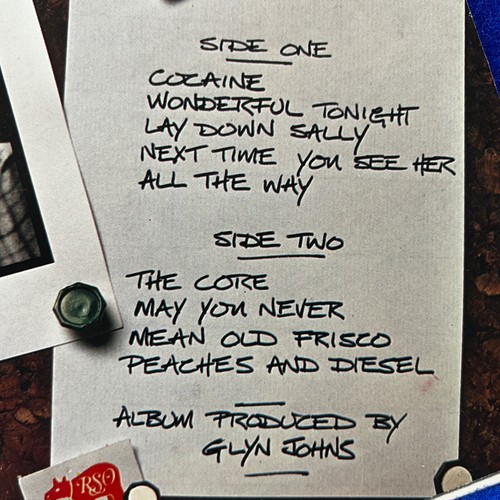 SIDE ONE
COCAINE
WONDERFUL TONIGHT
LAY DOWN SALLY
NEXT TIME YOU SEE HER
ALL THE WAY
SIDE TWO
THE CORE
MAY YOU NEVER
MEAN OLD FRISCO
PEACHES AND DIESEL
ALBUM PRODUCED BY
GLYN JOHNS
RSO